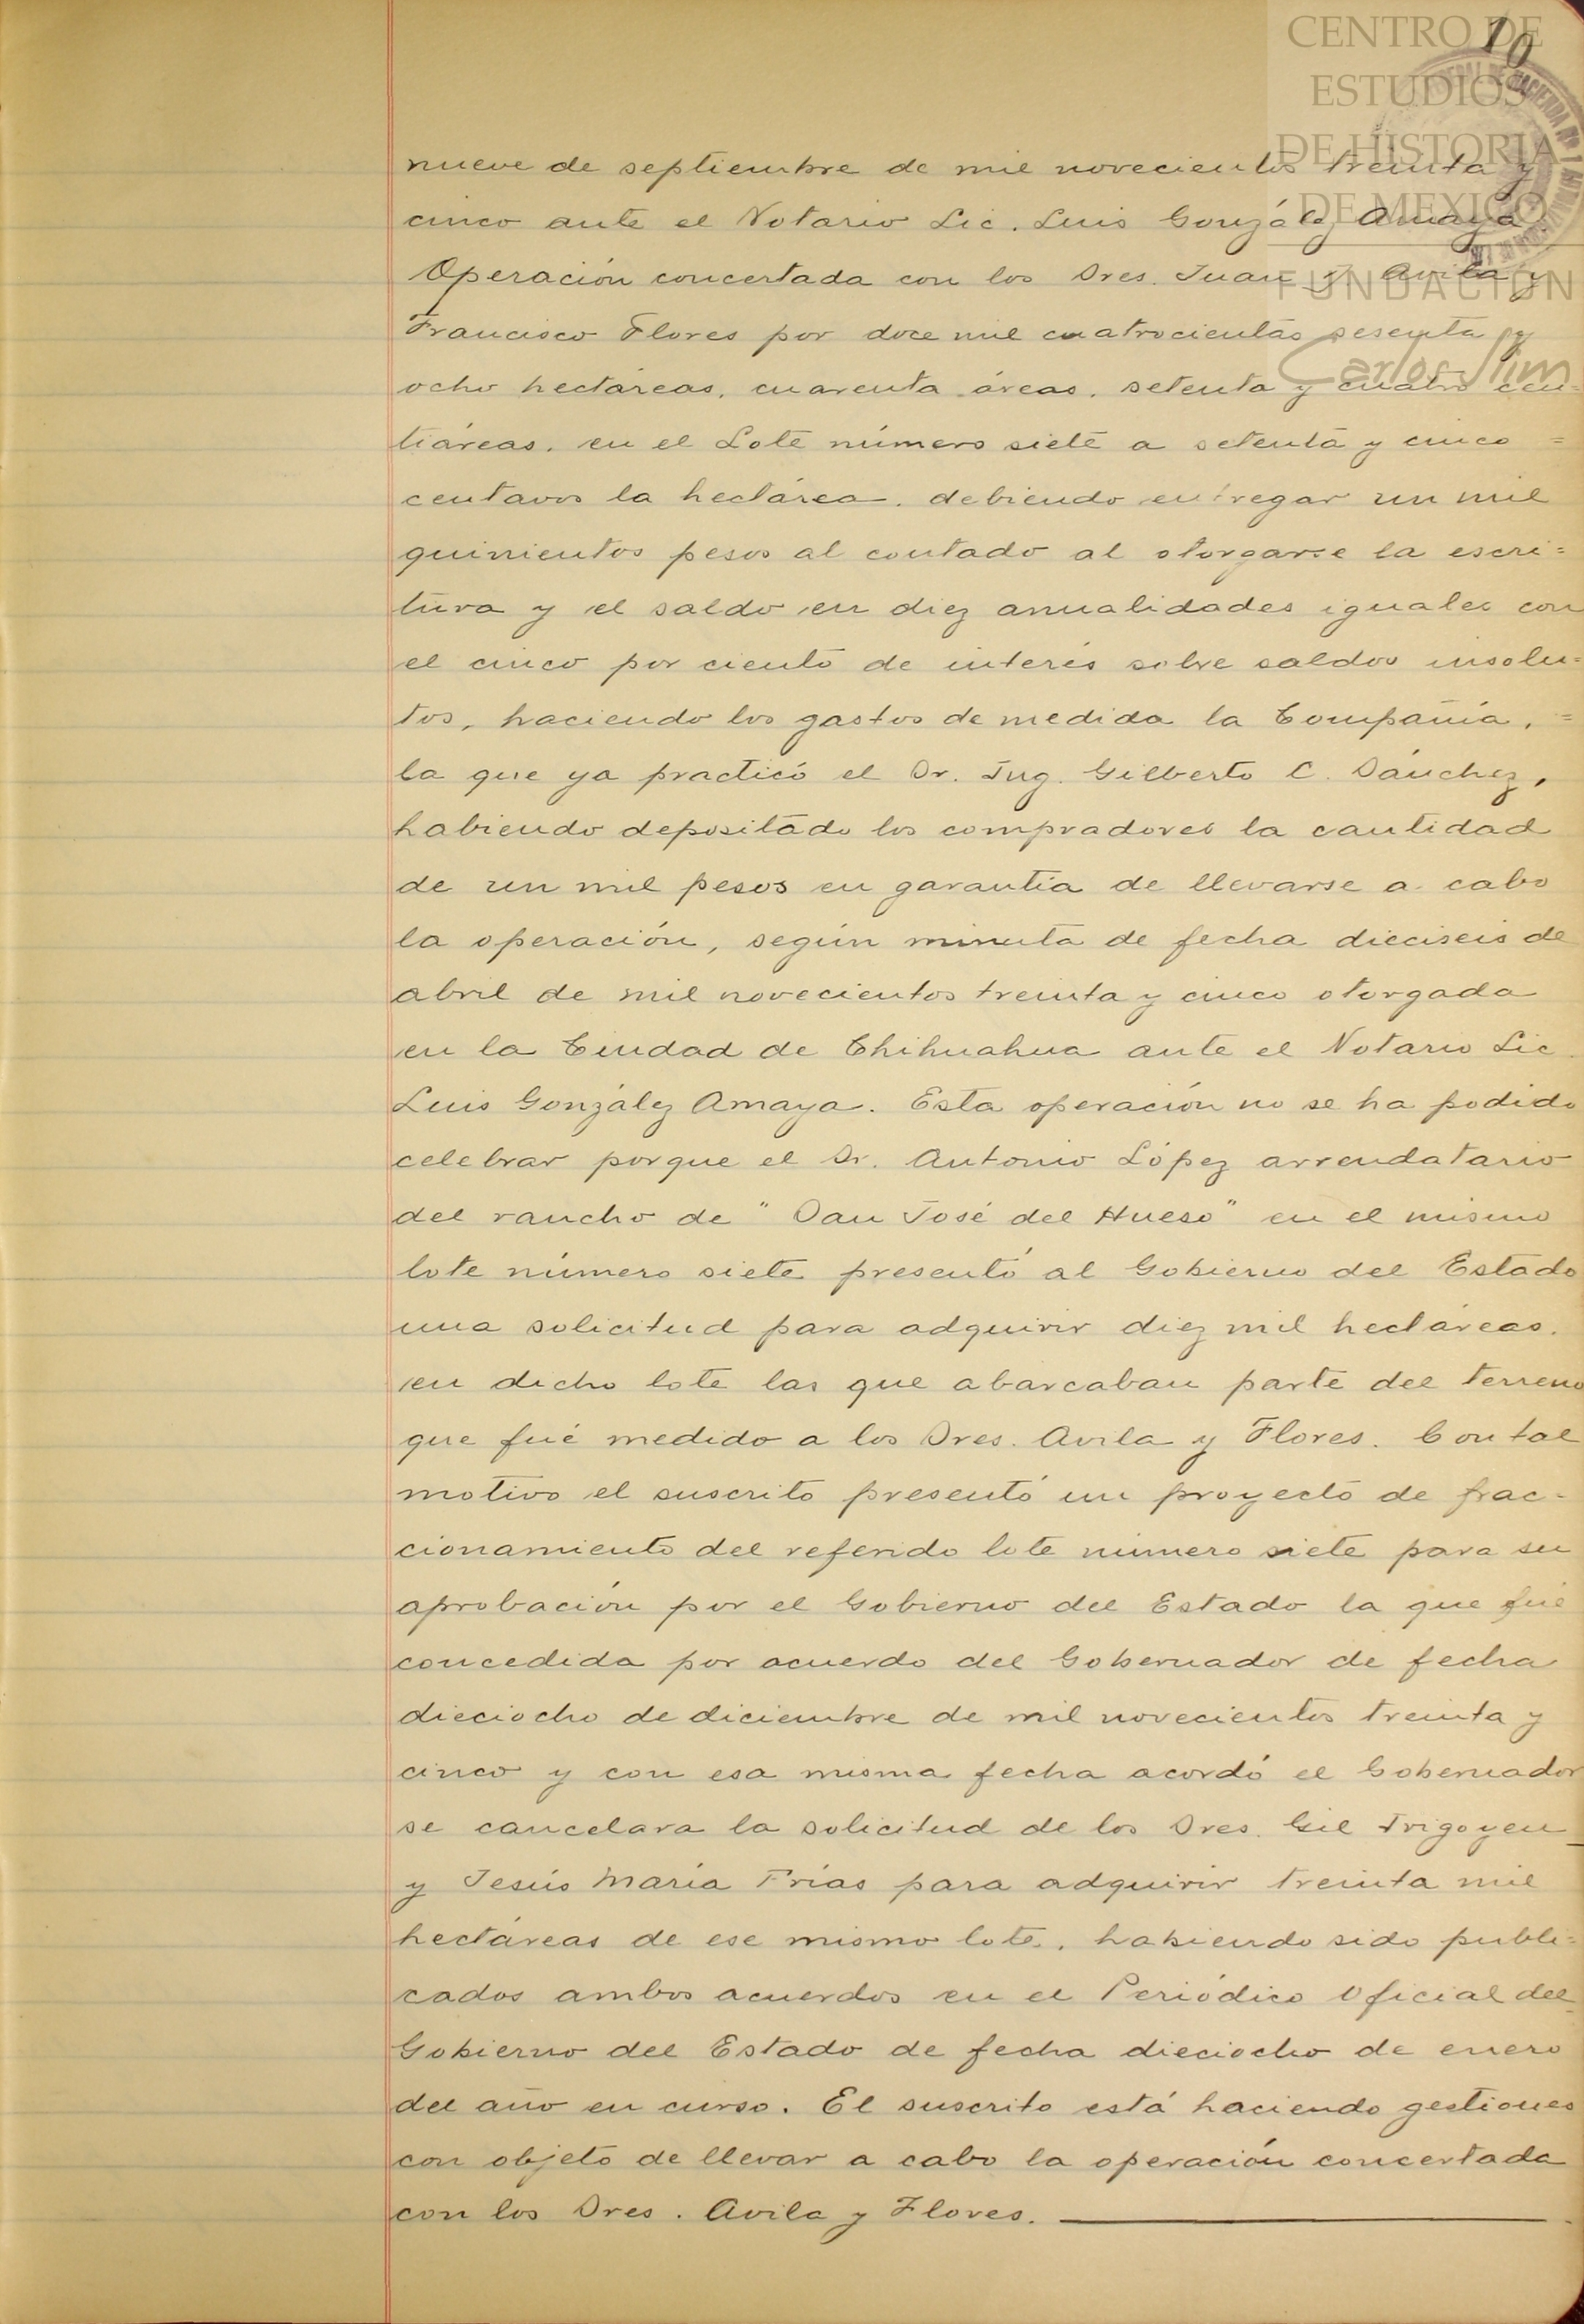 CENTRO DE
ESTUDIOS
DE HISTORIA
DE MEXICO
FUNDACIÓN
Carlos Slim
10
nueve de septiembre de mil novecientos treinta y
cinco ante el Notario Lic. Luis González Amaya
Operación concertada con los Sres. Juan J. Avila y
Francisco Flores por doce mil cuatrocientas sesenta y
ocho hectáreas, cuarenta áreas, setenta y cuatro cen=
tiáreas, en el Lote número siete a setenta y cinco =
centavos la hectárea, debiendo entregar un mil
quinientos pesos al contado al otorgarse la escri=
tura y el saldo en diez anualidades iguales con
el cinco por ciento de interés sobre saldos insolu=
tos, haciendo los gastos de medida la Compañía, =
la que ya practicó el Sr. Ing. Gilberto C. Sánchez,
habiendo depositado los compradores la cantidad
de un mil pesos en garantía de llevarse a cabo
la operación, según minuta de fecha dieciseis de
abril de mil novecientos treinta y cinco otorgada
en la Ciudad de Chihuahua ante el Notario Lic.
Luis González Amaya. Esta operación no se ha podido
celebrar porque el Sr. Antonio López arrendatario
del rancho de "San José del Hueso" en el mismo
lote número siete presentó al Gobierno del Estado
una solicitud para adquirir diez mil hectáreas.
en dicho lote las que abarcaban parte del terreno
que fué medido a los Sres. Avila y Flores. Con tal
motivo el suscrito presentó un proyecto de frac-
cionamiento del referido lote número siete para su
aprobación por el Gobierno del Estado la que fué
concedida por acuerdo del Gobernador de fecha
dieciocho de diciembre de mil novecientos treinta y
cinco y con esa misma fecha acordó el Gobernador
se cancelara la solicitud de los Sres. Gil Irigoyen
y Jesús María Frías para adquirir treinta mil
hectáreas de ese mismo lote, habiendo sido publi=
cados ambos acuerdos en el Periódico Oficial del
Gobierno del Estado de fecha dieciocho de enero
del año en curso. El suscrito está haciendo gestiones
con objeto de llevar a cabo la operación concertada
con los Sres. Avila y Flores.